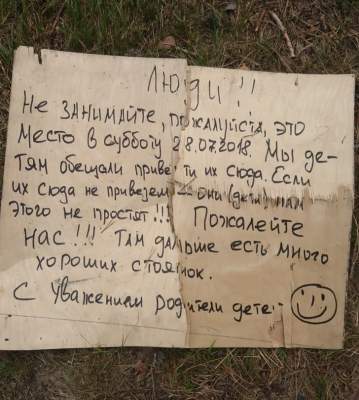 ЛЮДИ!!!
Не занимайте, пожалуйста, это
место в субботу 28.07.2018. Мы де-
тям обещали приве ти их сюда. Если
их сюда не привезем – они (дети) нам
этого не простят!!! Пожалейте
нас!!! Там дальше есть много
хороших стоянок.
С уважением родители дете